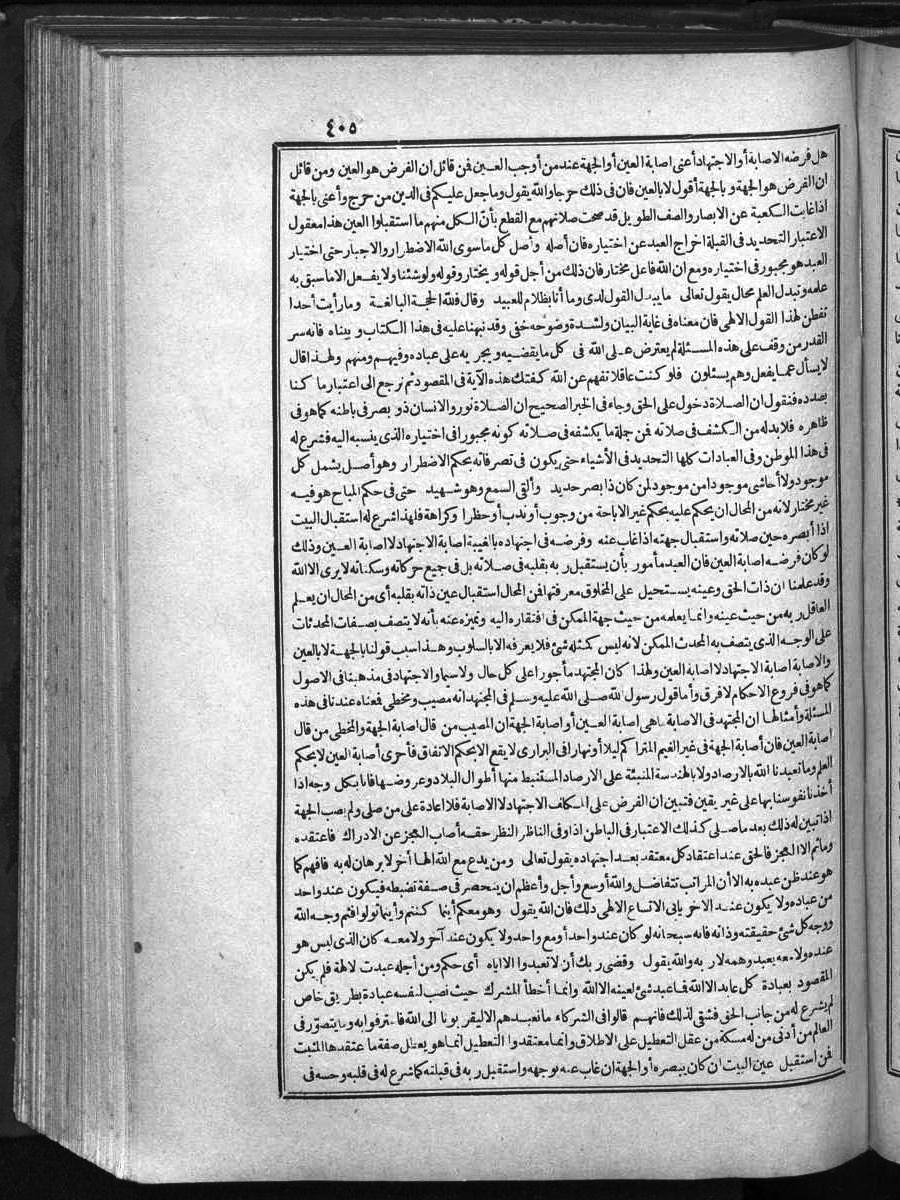 ٤٠٥
هل فرضه الاصابة أو الاجتهاد أعنى اصابة العين أو الجهة عند من أوجب العين فمن قائل ان الفرض هو العين ومن قائل
ان الفرض هو الجهة وبالجهة أقول لا بالعين فان فى ذلك حرجا والله يقول وما جعل عليكم فى الدين من حرج وأعنى بالجهة
اذا غابت الكعبة عن الابصار والصف الطويل قد صحت صلاتهم مع القطع بأن الكل منهم ما استقبلوا العين هذا معقول
الاعتبار التحديد فى القبلة اخراج العبد عن اختياره فان أصله وأصل كل ما سوى الله الاضطرار والاجبار حتى اختيار
العبد هو مجبور فى اختياره ومع ان الله فاعل مختار فان ذلك من أجل قوله ويختار وقوله ولو شئنا ولا يفعل الا ما سبق به
علمه وتبدل العلم محال يقول تعالى ما يبدل القول لدى وما أنا بظلام للعبيد وقال فلله الحجة البالغة وما رأيت أحدا
تفطن لهذا القول الالهى فان معناه فى غاية البيان ولشدة وضوحه خفى وقد نبهنا عليه فى هذا الكتاب وبيناه فانه سر
القدر من وقف على هذه المسئلة لم يعترض على الله فى كل ما يقضيه ويجريه على عباده وفيهم ومنهم ولهذا قال
لا يسأل عما يفعل وهم يسئلون فلو كنت عاقلا تفهم عن الله كفتك هذه الآية فى المقصود ثم نرجع الى اعتبار ما كنا
بصدده فنقول ان الصلاة دخول على الحق وجاء فى الخبر الصحيح ان الصلاة نور والانسان ذو بصر فى باطنه كما هو فى
ظاهره فلا بد له من الكشف فى صلاته فمن جملة ما يكشفه فى صلاته كونه مجبورا فى اختياره الذى ينسبه اليه فشرع له
فى هذا الموطن وفى العبادات كلها التحديد فى الأشياء حتى يكون فى تصرفاته بحكم الاضطرار وهو أصل يشمل كل
موجود ولا أحاشى موجودا من موجود لمن كان ذا بصر حديد وألقى السمع وهو شهيد حتى فى حكم المباح هو فيه
غير مختار لانه من المحال ان يحكم عليه بحكم غير الاباحة من وجوب أو ندب أو حظر أو كراهة فلهذا شرع له استقبال البيت
اذا أبصره حين صلاته واستقبال جهته اذا غاب عنه وفرضه فى اجتهاده بالغيبة اصابة الاجتهاد لا اصابة العين وذلك
لو كان فرضه اصابة العين فان العبد مأمور بأن يستقبل ربه بقلبه فى صلاته بل فى جميع حركاته وسكناته لا يرى الا الله
وقد علمنا ان ذات الحق وعينه يستحيل على المخلوق معرفتها فمن المحال استقبال عين ذاته بقلبه أى من المحال ان يعلم
العاقل ربه من حيث عينه وانما يعلمه من حيث جهة الممكن فى افتقاره اليه وتميزه عنه بأنه لا يتصف بصفات المحدثات
على الوجه الذى يتصف به المحدث الممكن لانه ليس كمثله شئ فلا يعرف الا بالسلوب وهذا سبب قولنا بالجهة لا بالعين
والاصابة اصابة الاجتهاد لا اصابة العين ولهذا كان المجتهد مأجورا على كل حال ولا سيما والاجتهاد فى مذهبنا فى الاصول
كما هو فى فروع الاحكام لا فرق وأما قول رسول الله صلى الله عليه وسلم فى المجتهد انه مصيب ومخطى فمعناه عندنا فى هذه
المسئلة وأمثالها ان المجتهد فى الاصابة ما هى اصابة العين أو اصابة الجهة ان المصيب من قال اصابة الجهة والمخطى من قال
اصابة العين فان أصابة الجهة فى غير الغيم المتراكم ليلا أو نهارا فى البرارى لا يقع الا بحكم الاتفاق فأحرى أصابة العين لا بحكم
العلم وما تعبدنا الله بالارصاد ولا بالهندسة المنبئة على الارصاد المستنبط منها أطوال البلاد وعروضها فانا بكل وجه اذا
أخذنا نفوسنا بها على غير يقين فتبين ان الفرض على المكلف الاجتهاد لا الاصابة فلا اعادة على من صلى ولم يصب الجهة
اذا تبين له ذلك بعد ما صلى كذلك الاعتبار فى الباطن اذا وفى الناظر النظر حقه أصاب العجز عن الادراك فاعتقده
وما ثم الا العجز فالحق عند اعتقاد كل معتقد بعد اجتهاده يقول تعالى ومن يدع مع الله الها آخر لا برهان له به فافهم كما
هو عند ظن عبده به الا أن المراتب تتفاضل والله أوسع وأجل وأعظم ان ينحصر فى صفة تضبطه فيكون عند واحد
من عباده ولا يكون عند الآخر يأبى الاتساع الالهى ذلك فان الله يقول وهو معكم أينما كنتم وأينما تولوا فثم وجه الله
ووجه كل شئ حقيقته وذاته فانه سبحانه لو كان عند واحد أو مع واحد ولا يكون عند آخر ولا معه كان الذى ليس هو
عنده ولا معه يعبد وهمه لا ربه والله يقول وقضى ربك أن لا تعبدوا الا اياه أى حكم ومن أجله عبدت لآلهة فلم يكن
المقصود بعبادة كل عابد الا الله فما عبد شئ لعينه الا الله وانما أخطأ المشرك حيث نصب لنفسه عبادة بطريق خاص
لم يشرع له من جانب الحق فشقى لذلك فانهم قالوا فى الشركاء ما نعبدهم الا ليقربونا الى الله فاعترفوا به وما يتصور فى
العالم من أدنى من له مسكة من عقل التعطيل على الاطلاق وانما معتقدوا التعطيل انما هو يعطل صفة ما عتقدها المثبت
فمن استقبل عين البيت ان كان يبصره أو الجهة ان غاب عنه بوجهه واستقبل ربه فى قبلته كما شرع له فى قلبه وحسه فى